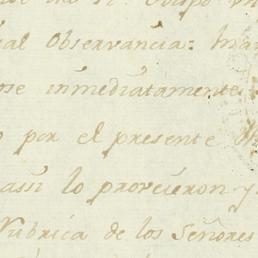 Observancia: Man
ose inmediatamente
por el presente
assi lo proveieron y
Rubrica de los Señores